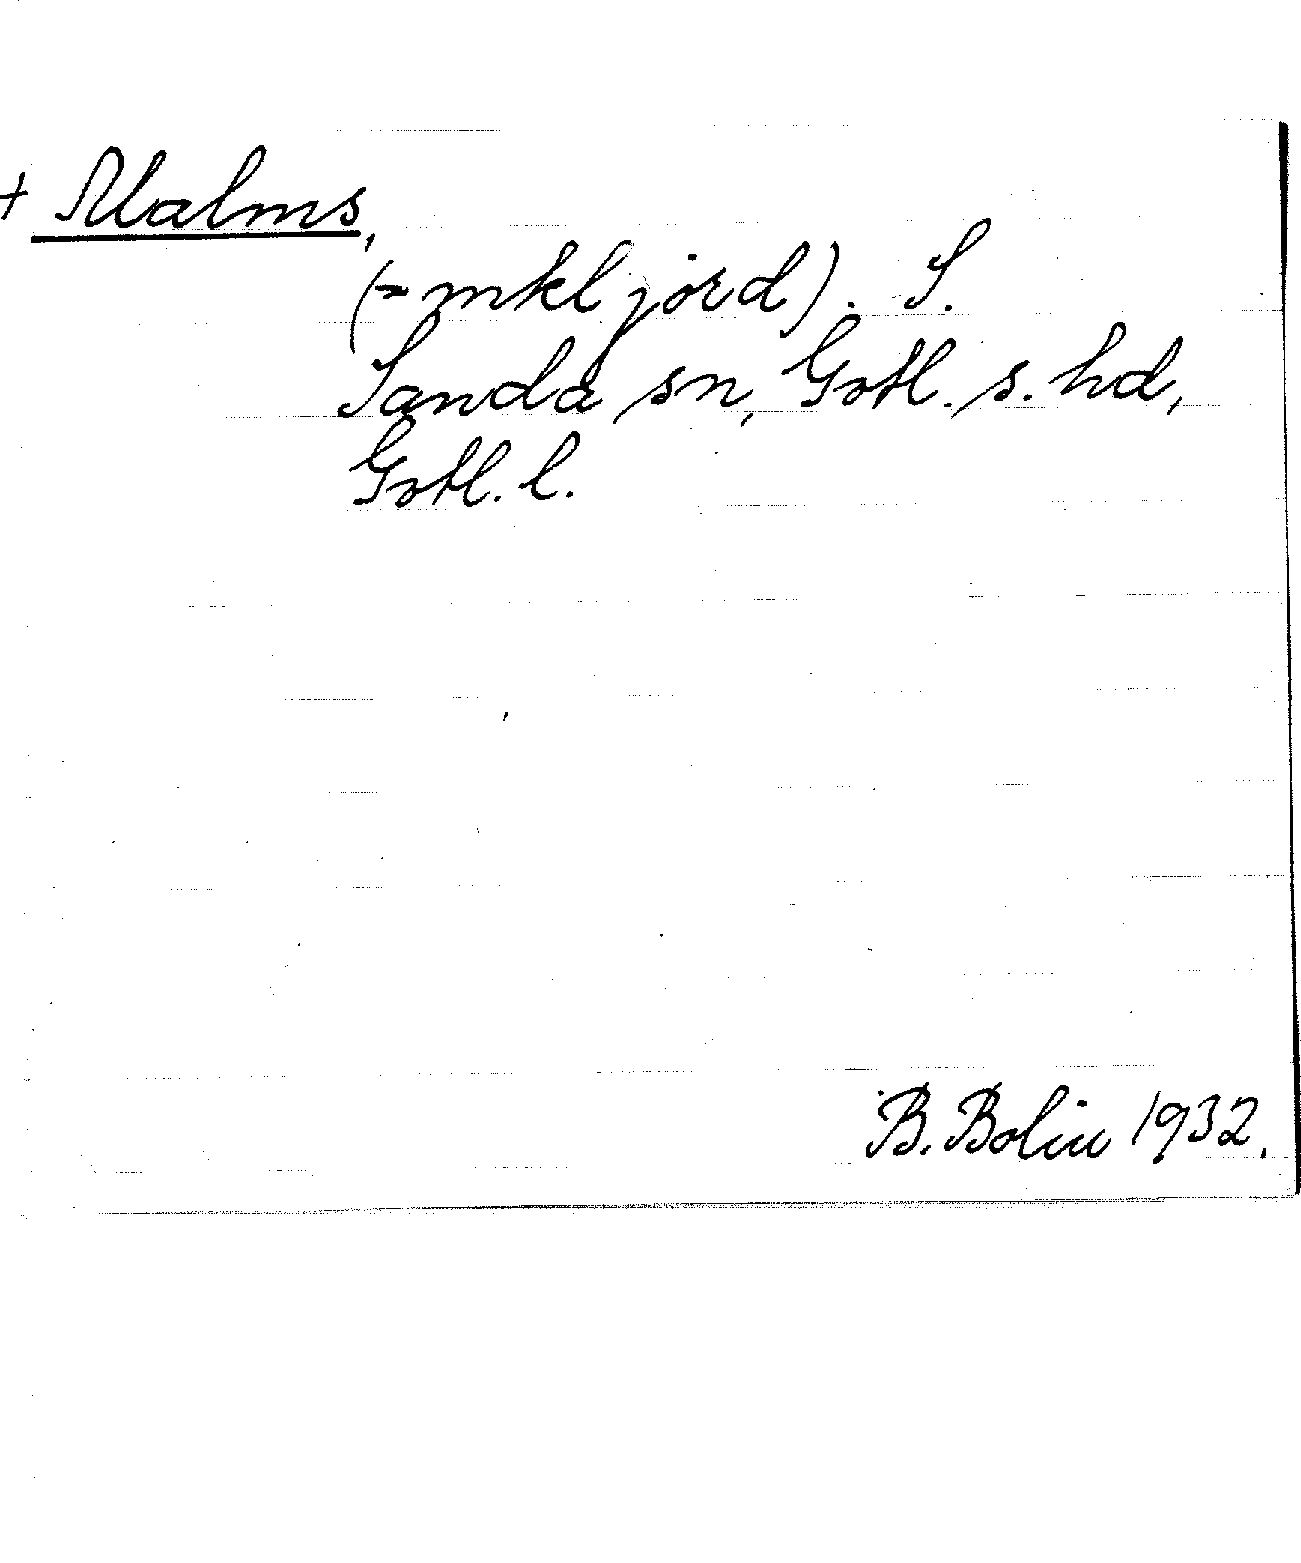 + Malms,
(= mkl jord). S.
Sanda sn, Gotl. s. hd,
Gotl. l.
B. Bolin 1932.